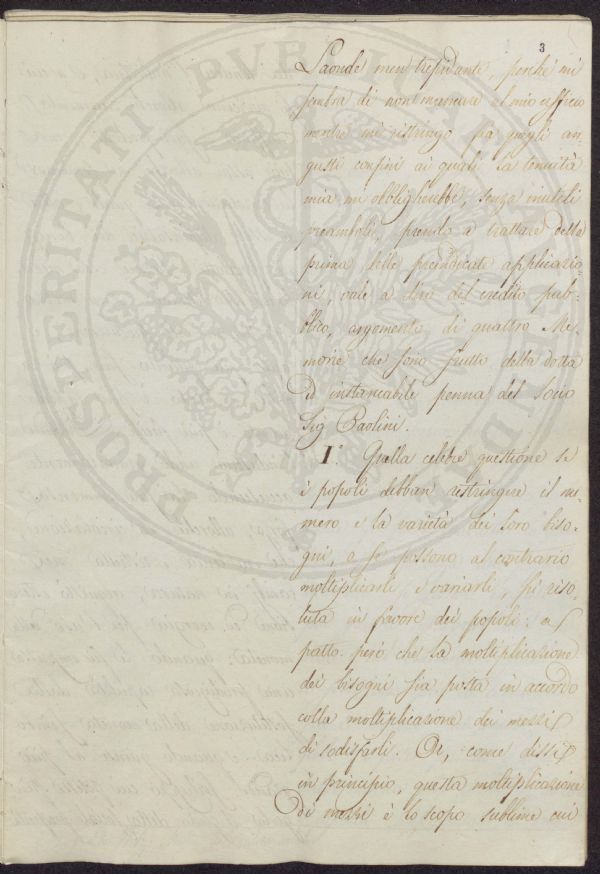 3
Laonde men trepidante, perché mi
sembra di non mancare al mio ufficio
mentre mi ristringo fra quegli an-
gusti confini ai quali la tenuità
mia mi obbligherebbe, senza inutili
preamboli, prendo a trattare della
prima delle preindicate applicazio-
ni, vale a dire del credito pub-
blico, argomento di quattro Me-
morie che sono frutto della dotta
ed instancabile penna del Socio
Sig Paolini.
I°. Quella celebre questione se
i popoli debban restringere il nu-
mero e la varietà dei loro biso-
gni, o se possono al contrario
moltiplicarli, e variarli, fu riso-
luta in favore dei popoli: a
patto però che la moltiplicazione
dei bisogni sia posta in accordo
colla moltiplicazione dei mezzi
di sodisfarli. Or, come dissi
in principio, questa moltiplicazione
di mezzi è lo scopo sublime cui
PROSPERITATI PUBLICAE AUGENDAE